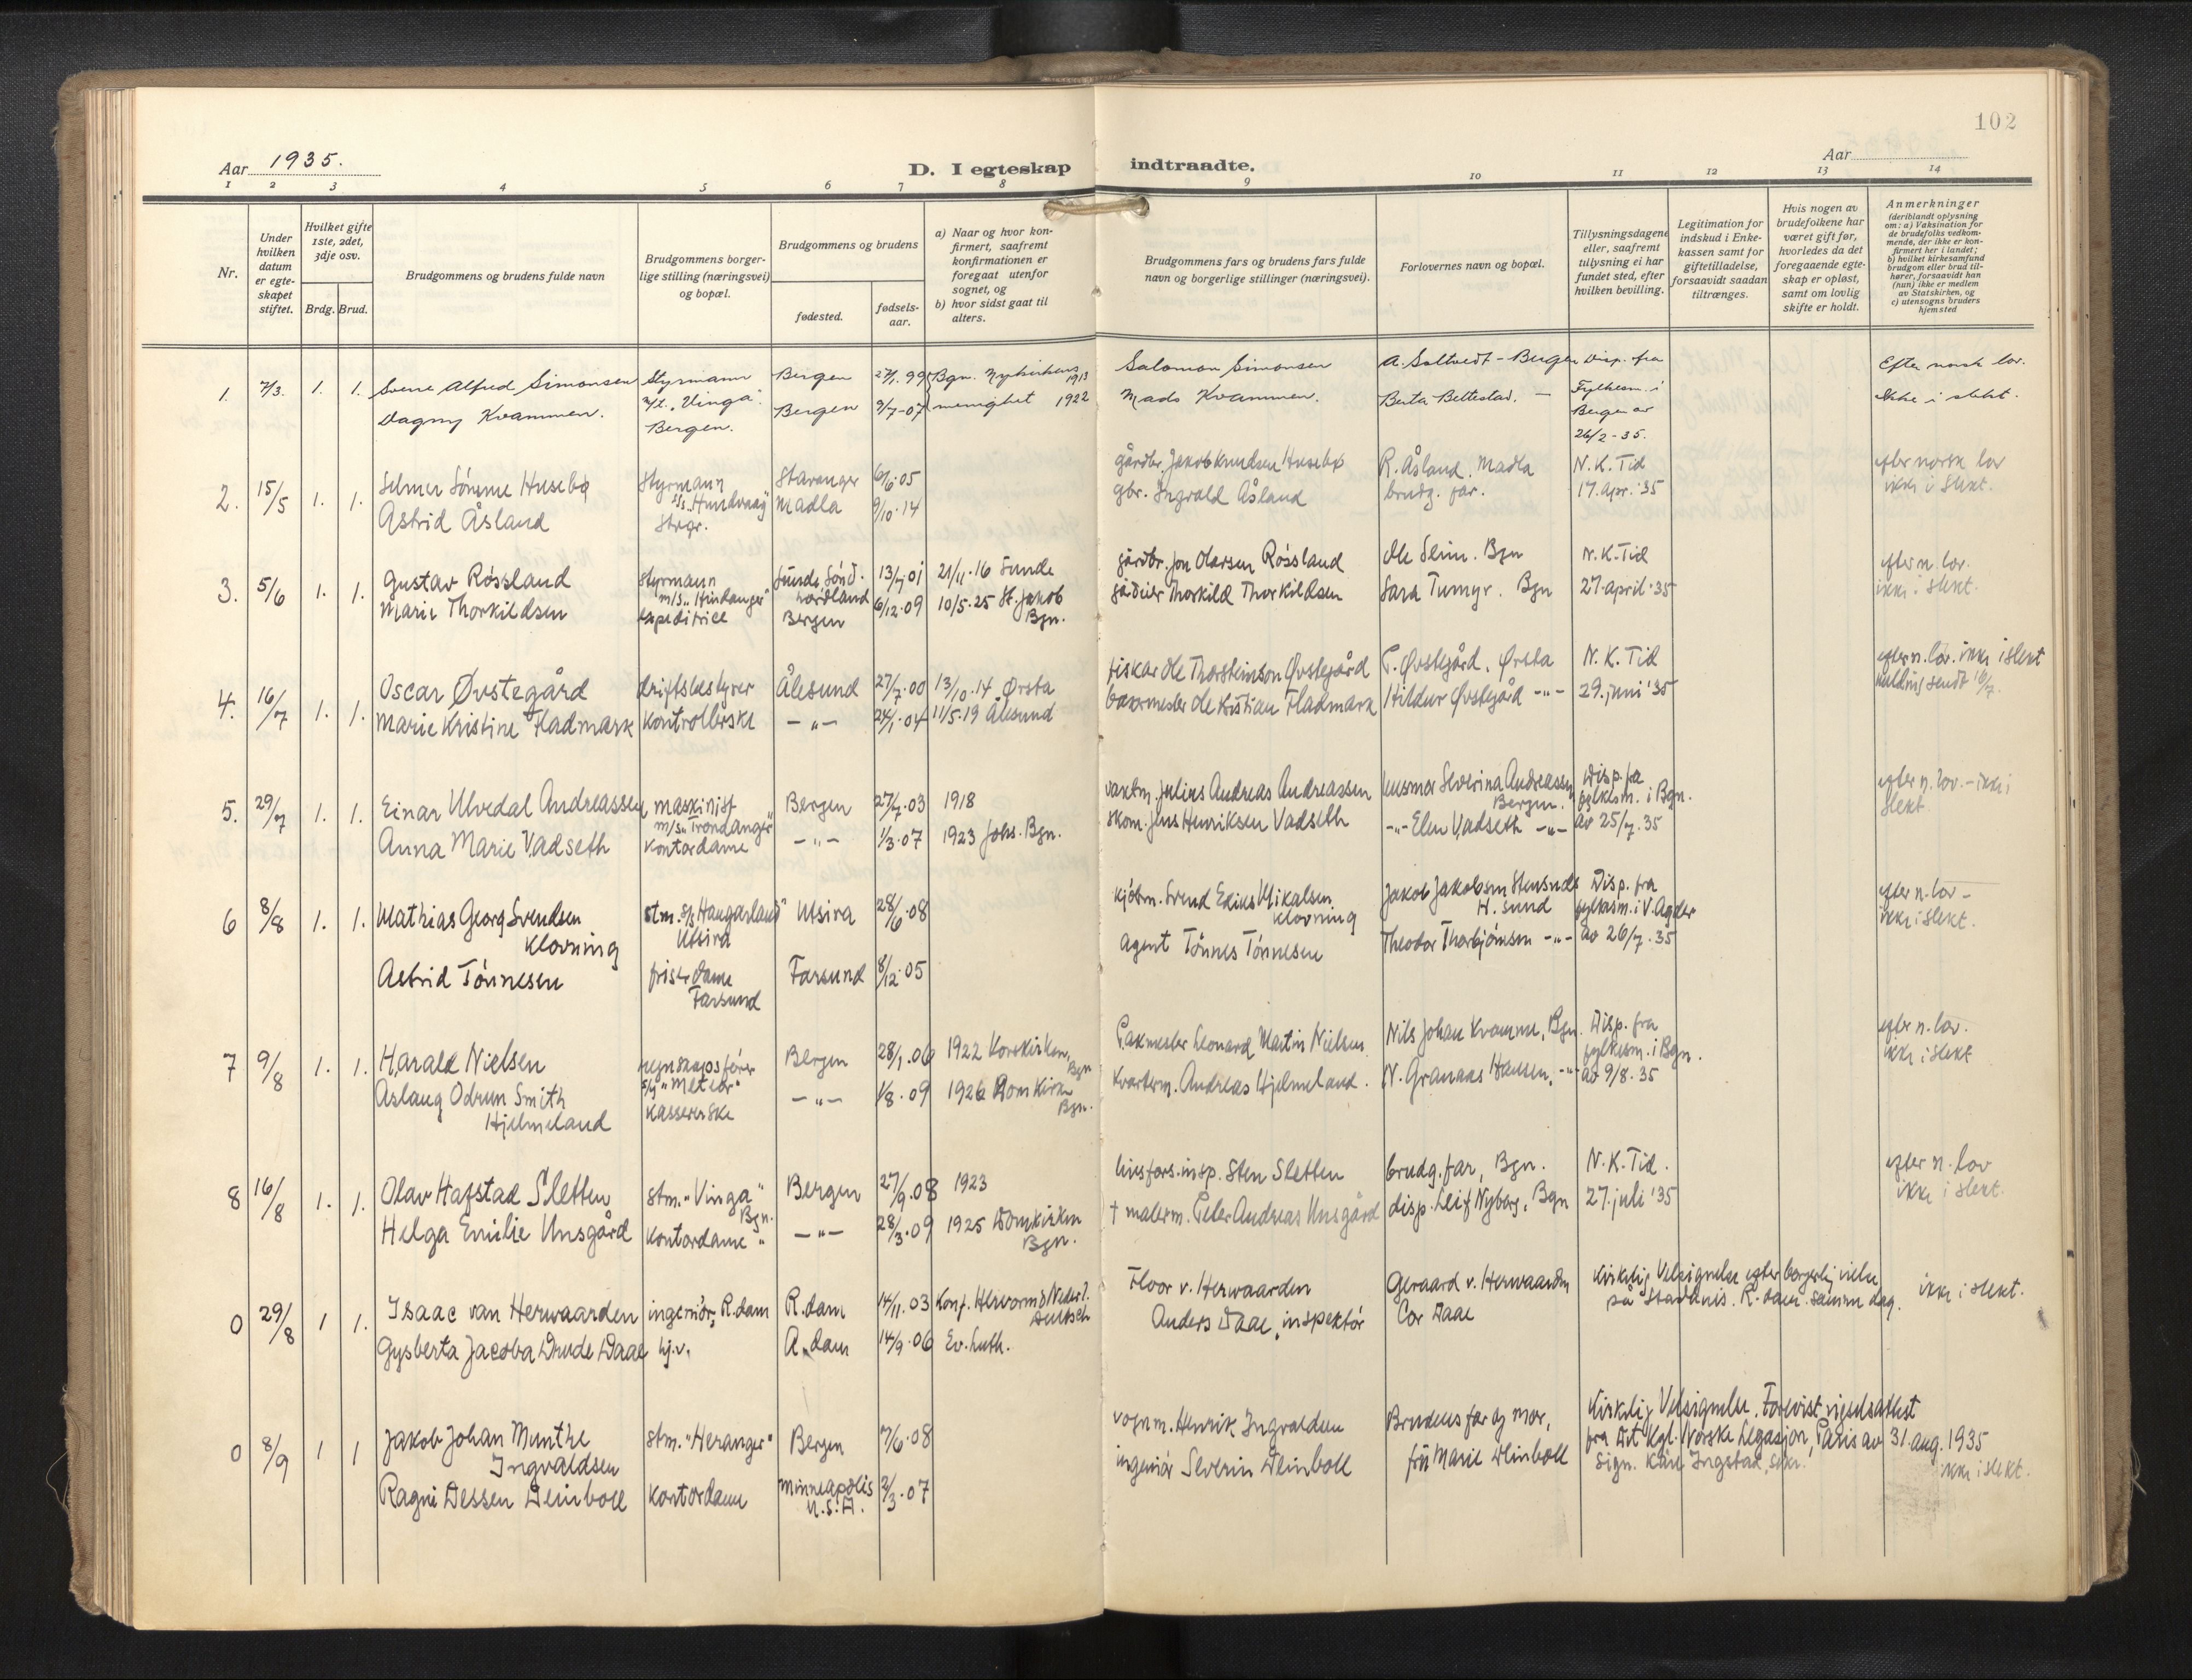 102
Aar 1935.
D. I egteskap indtraadte.
Aar
1 2 3 4 5 6 7 8 9 10 11 12 13 14
Nr.
Under hvilken datum er egte-skapet stiftet.
Hvilket gifte 1ste, 2det, 3dje osv.
Brdg. Brud.
Brudgommens og brudens fulde navn
Brudgommens borger-lige stilling (næringsvei) og bopæl.
Brudgommens og brudens
fødested.
fødsels-aar.
a) Naar og hvor kon-firmert, saafremt konfirmationen er foregaat utenfor sognet, og
b) hvor sidst gaat til alters.
Brudgommens fars og brudens fars fulde navn og borgerlige stillinger (næringsvei).
Forlovernes navn og bopæl.
Tillysningsdagene eller, saafremt tillysning ei har fundet sted, efter hvilken bevilling.
Legitimation for indskud i Enke-kassen samt for giftetilladelse, forsaavidt saadan tiltrænges.
Hvis nogen av brudefolkene har været gift før, hvorledes da det foregaaende egte-skap er opløst, samt om lovlig skifte er holdt.
Anmerkninger
(deriblandt oplysning om: a) Vaksination for de brudefolks vedkom-mende, der ikke er kon-firmert her i landet; b) hvilket kirkesamfund brudgom eller brud til-hører, forsaavidt han (hun) ikke er medlem av Statskirken, og c) utensogns bruders hjemsted
1. 7/3. 1. 1. Sverre Alfred Simonsen Styrmann Bergen 27/1. 99 Bgn. Nykirkens 1913 Salomon Simonsen A. Saltvedt - Bergen Disp. fra Efter norsk lov.
Dagny Kvammen. m/t. "Vinga" Bergen. Bergen 9/7-07 menighet 1922 Mads Kvammen. Berta Bettestad. — Fylkesm. i Bergen av 26/2-35. Ikke i slekt.
2. 15/5 1. 1. Selmer Sømme Husebø Styrmann Stavanger 6/6.05 gårdbr. Jakob Knudsen Husebø R. Åsland. Madla N.K.Tid efter norsk lov
Astrid Åsland s/s "Hundvaag" Strgr. Madla 9/10.14 gbr. Ingvald Åsland brudg. far. 17. apr. '35 ikke i slekt.
3. 5/6 1. 1. Gustav Røssland Styrmann Sunde, Sønd. 13/7.01 21/11.16 Sunde gårdbr. Jon Olarsen Røssland Ole Seim. Bgn N.K.Tid efter n. lov.
Marie Thorkildsen m/s "Hindanger" expeditrice hordland Bergen 6/12.09 10/5.25 St. Jakob Bgn. Thorkild Thorkildsen Sara Tumyr. Bgn 27 april '35 ikke i slekt.
4. 16/7 1. 1. Oscar Øvstegård driftsbestyrer Ålesund 27/7.00 13/10.14 Ørsta fiskar Ole Thorsteinson Øvstegård P. Øvstegård, Ørsta N.K.Tid efter n. lov. ikke i slekt
Marie Kristine Fladmark Kontrollerske — " — 24/1.04 11/5.19 Ålesund bakermester Ole Kristian Fladmark Hildur Øvstegård - " - 29. juni '35 melding sendt 16/7.
5. 29/7 1. 1. Einar Ulvedal Andreassen maskinist Bergen 27/7.03 1918 vaktm. Julius Andreas Andreassen husmor Severina Andreassen Bergen. Disp. fra efter n. lov. - ikke i
Anna Marie Vadseth m/s "Trondanger" kontordame — " — 1/3.07 1923 Johs. Bgn. skom. Jens Henriksen Vadseth - " - Elen Vadseth - " - fylkesm. i Bgn. av 25/7.35 slekt.
6 8/8 1. 1. Mathias Georg Svendsen Klovning stm. s/s "Haugarland" Utsira Utsira 28/6.08 kjøbm. Svend Mikalsen Klovning Jakob Jakobsen Stensnes H.sund Disp. fra efter n. lov -
Astrid Tønnesen frisørdame Farsund Farsund 8/12.05 agent Tønnes Tønnesen Theodor Thorbjørnsen - " - fylkesm. i V. Agder av 26/7.35 ikke i slekt.
7 9/8 1. 1. Harald Nielsen regnskapsfører Bergen 28/1.06 1922 Korskirken, Bgn Pakmester Leonard Martin Nielsen Nils Johan Kvamme, Bgn. Disp. fra efter n. lov.
Aslaug Odrun Smith Hjelmeland s/y "Meteor" kassererske — " — 1/8.09 1926 Domkirk Bgn. Kvarterm. Andreas Hjelmeland. N. Granaas Hansen, - " - fylkesm. i Bgn. av 9/8.35 ikke i slekt
8 16/8 1. 1. Olav Hafstad Sletten stm. "Vinga" Bgn. Bergen 27/9.08 1923 livsfors. insp. Sten Sletten brudg. far, Bgn. N.K.Tid. efter n. lov
Helga Emilie Unsgård Kontordame " — " — 28/3.09 1925 Domkirken Bgn. † malerm. Peter Andreas Unsgård disp. Leif Nyborg, Bgn 27. juli '35 ikke i slekt.
0 29/8 1 1. Isaac van Herwaarden ingeniør, R.dam R.dam 14/11.03 Konf. Hervormd Nederl. Floor v. Herwaarden Geraard v. Herwaarden Kirkelig Velsignelse efter borgerlig vielse ikke i slekt.
Gysberta Jacoba Drude Daae hj.v. A.dam 14/9.06 Ev. Luth. Anders Daae, inspektør Cor Daae på Stadhuis. R.dam. samme dag.
0 8/9 1 1 Jakob Johan Munthe Ingvaldsen stm. "Heranger" Bergen 7/6.08 vognm. Henrik Ingvaldsen Brudens far og mor, Kirkelig Velsignelse. Forevist vigselsattest
Ragni Dessen Deinboll Kontordame Minneapolis U.S.A. 2/3.07 ingeniør Severin Deinboll fru Marie Deinboll fra Det Kgl. Norske Legasjon, Paris av 31. aug. 1935
Sign. Kåre Ingstad, sekr. ikke i slekt.